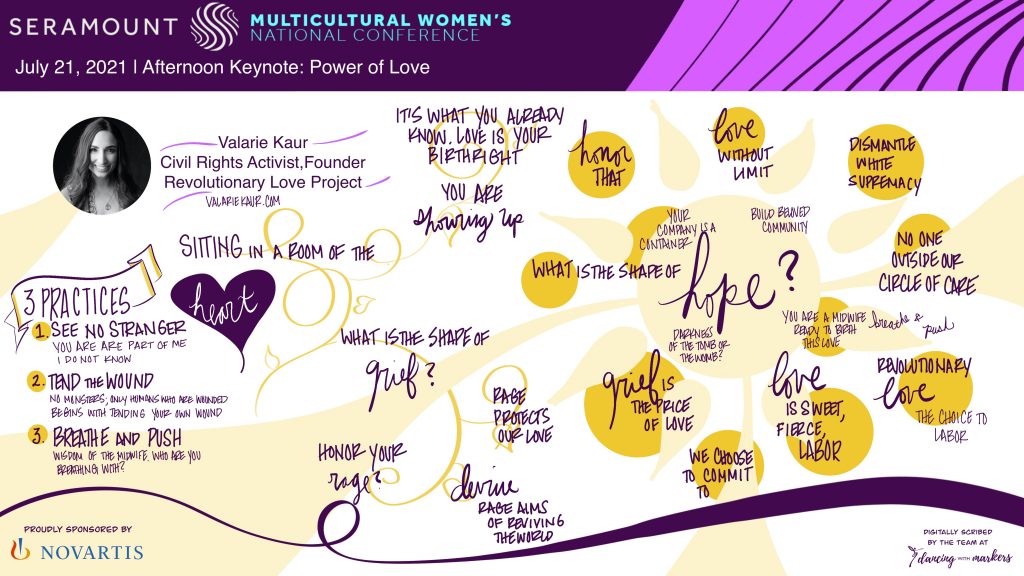 SERAMOUNT
MULTICULTURAL WOMEN'S
NATIONAL CONFERENCE
July 21, 2021 | Afternoon Keynote: Power of Love
Valarie Kaur
Civil Rights Activist,Founder
Revolutionary Love Project
VALARIEKAUR.COM
SITTING IN A ROOM OF THE
heart
3 PRACTICES
1. SEE NO STRANGER
YOU ARE ARE PART OF ME
I DO NOT KNOW
2. TEND THE WOUND
NO MONSTERS; ONLY HUMANS WHO ARE WOUNDED
BEGINS WITH TENDING YOUR OWN WOUND
3. BREATHE AND PUSH
WISDOM OF THE MIDWIFE. WHO ARE YOU
BREATHING WITH?
IT'S WHAT YOU ALREADY
KNOW. LOVE IS YOUR
BIRTHRIGHT
YOU ARE
showing up
WHAT IS THE SHAPE OF
grief?
HONOR YOUR
rage?
RAGE
PROTECTS
OUR LOVE
devine
RAGE AIMS
OF REVIVING
THE WORLD
honor
THAT
love
WITHOUT
LIMIT
DISMANTLE
WHITE
SUPREMACY
YOUR
COMPANY IS A
CONTAINER
BUILD BELOVED
COMMUNITY
WHAT IS THE SHAPE OF
hope?
NO ONE
OUTSIDE OUR
CIRCLE OF CARE
DARKNESS
OF THE TOMB OR
THE WOMB?
YOU ARE A MIDWIFE
READY TO BIRTH
THIS LOVE
breathe &
push
grief IS
THE PRICE
OF LOVE
love
IS SWEET,
FIERCE,
LABOR
REVOLUTIONARY
love
THE CHOICE TO
LABOR
WE CHOOSE
TO COMMIT
TO
PROUDLY SPONSORED BY
NOVARTIS
DIGITALLY SCRIBED
BY THE TEAM AT
dancing WITH markers